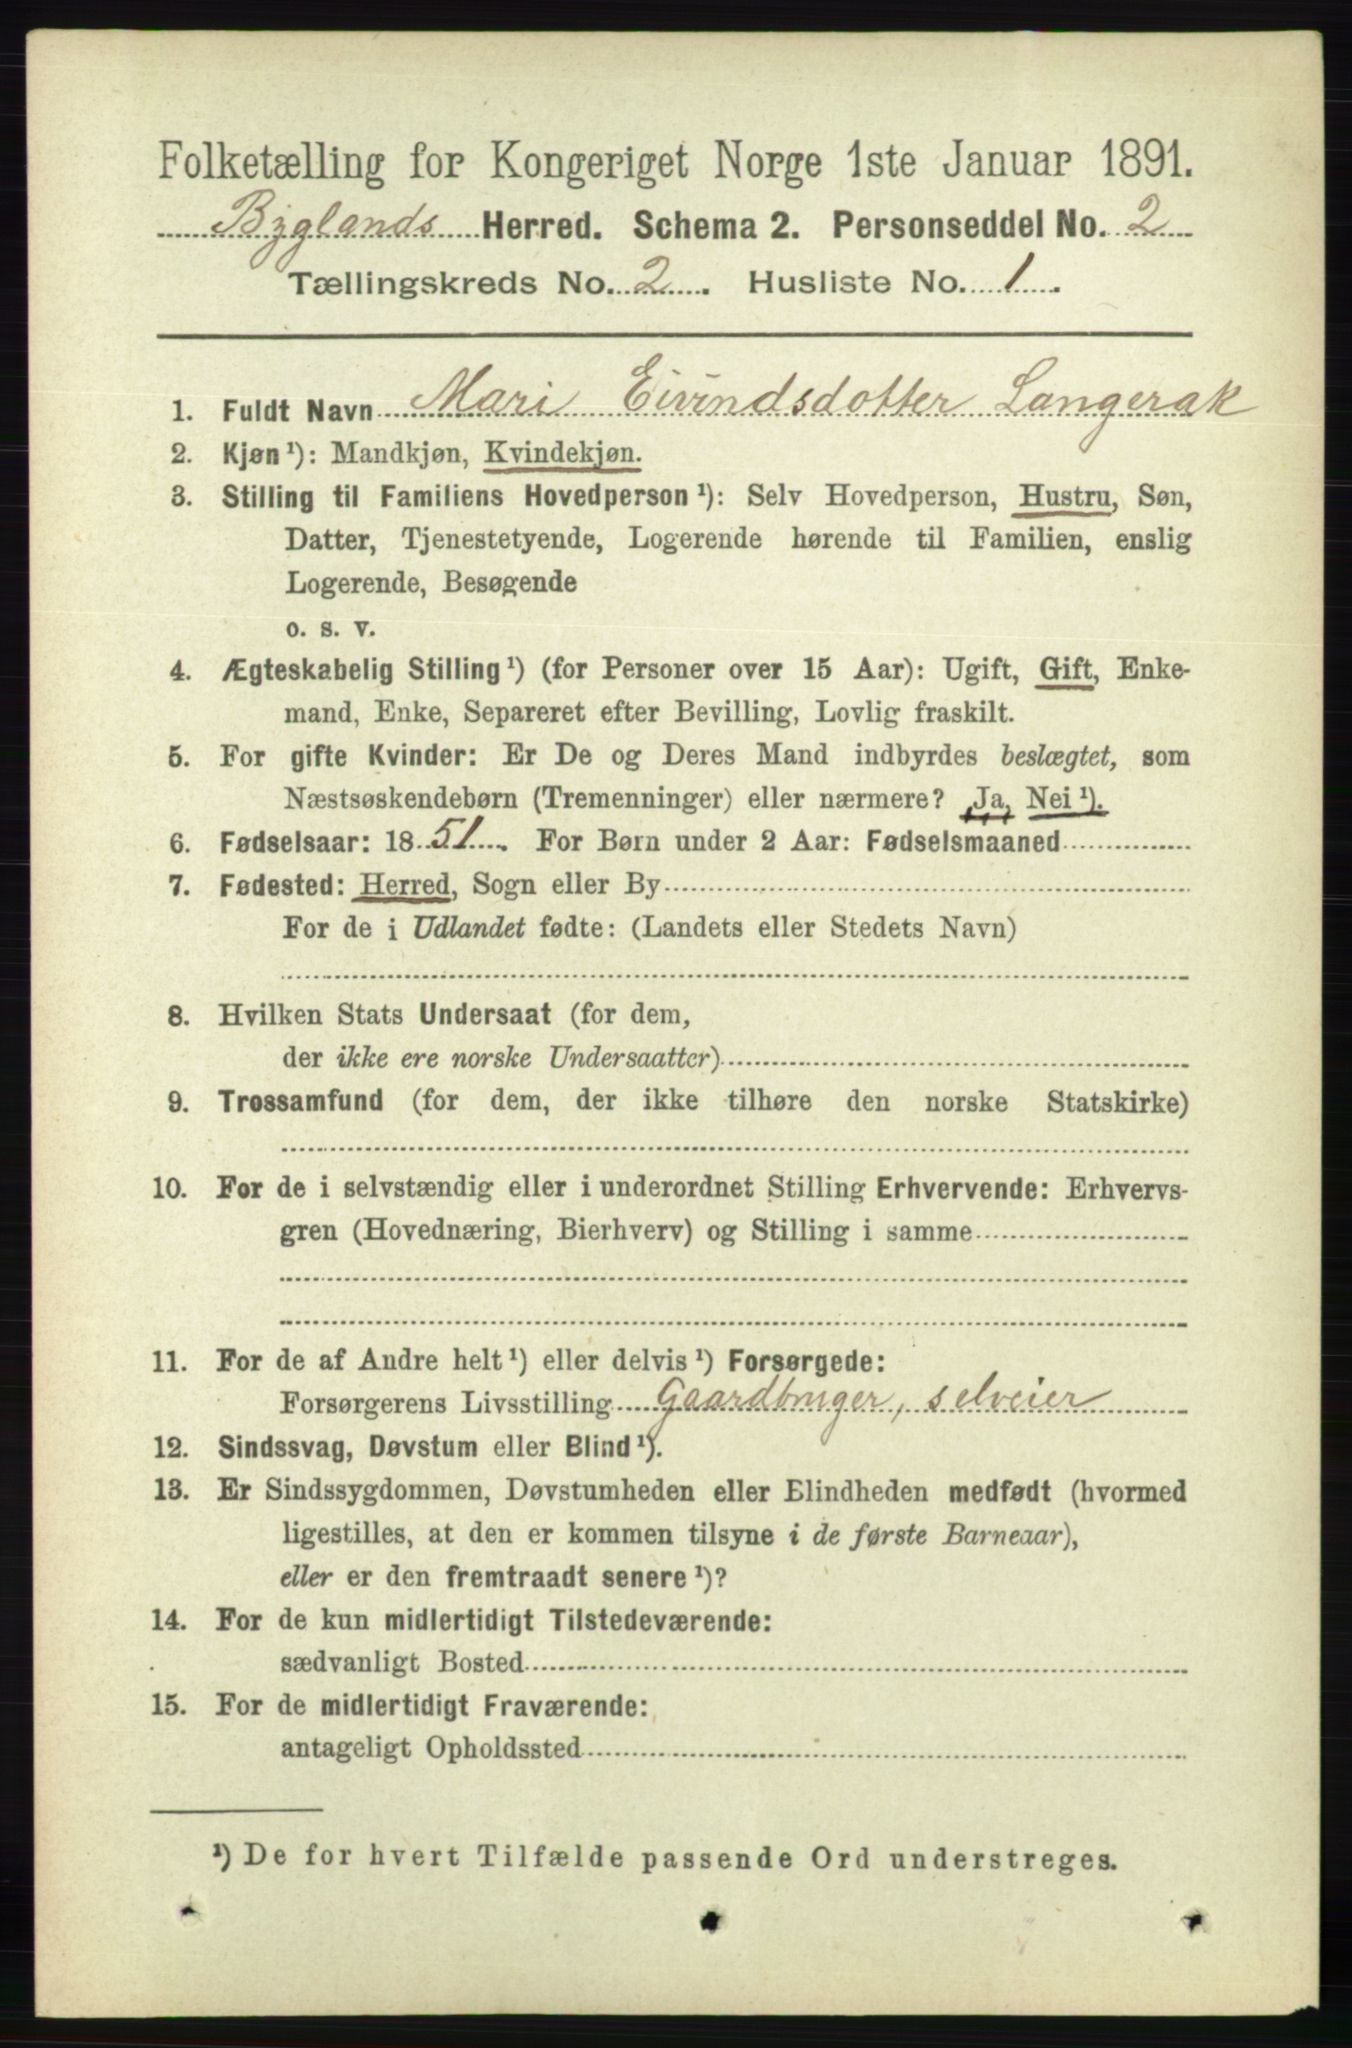 Folketælling for Kongeriget Norge 1ste Januar 1891.
Byglands Herred. Schema 2. Personseddel No. 2
Tællingskreds No. 2. Husliste No. 1.
1. Fuldt Navn Mari Eivindsdotter Langerak
2. Kjøn¹): Mandkjøn, Kvindekjøn.
3. Stilling til Familiens Hovedperson¹): Selv Hovedperson, Hustru, Søn,
Datter, Tjenestetyende, Logerende hørende til Familien, enslig
Logerende, Besøgende
o. s. v.
4. Ægteskabelig Stilling¹) (for Personer over 15 Aar): Ugift, Gift, Enke-
mand, Enke, Separeret efter Bevilling, Lovlig fraskilt.
5. For gifte Kvinder: Er De og Deres Mand indbyrdes beslægtet, som
Næstsøskendebørn (Tremenninger) eller nærmere? Ja, Nei¹).
6. Fødselsaar: 1851. For Børn under 2 Aar: Fødselsmaaned
7. Fødested: Herred, Sogn eller By
For de i Udlandet fødte: (Landets eller Stedets Navn)
8. Hvilken Stats Undersaat (for dem,
der ikke ere norske Undersaatter)
9. Trossamfund (for dem, der ikke tilhøre den norske Statskirke)
10. For de i selvstændig eller i underordnet Stilling Erhvervende: Erhvervs-
gren (Hovednæring, Bierhverv) og Stilling i samme
11. For de af Andre helt¹) eller delvis¹) Forsørgede:
Forsørgerens Livsstilling Gaardbruger, selveier
12. Sindssvag, Døvstum eller Blind¹).
13. Er Sindssygdommen, Døvstumheden eller Blindheden medfødt (hvormed
ligestilles, at den er kommen tilsyne i de første Barneaar),
eller er den fremtraadt senere¹)?
14. For de kun midlertidigt Tilstedeværende:
sædvanligt Bosted
15. For de midlertidigt Fraværende:
antageligt Opholdssted
¹) De for hvert Tilfælde passende Ord understreges.